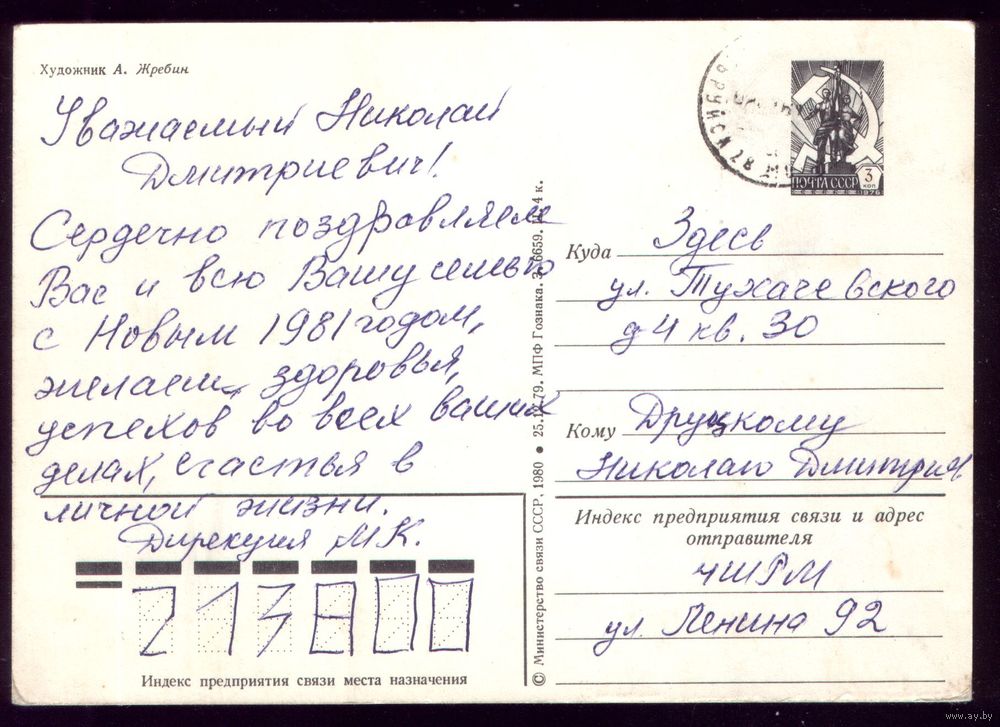 Художник А. Жребин
Уважаемый Николай
Дмитриевич!
Сердечно поздравляем
Вас и всю Вашу семью
с Новым 1981 годом,
желаем здоровья,
успехов во всех ваших
делах, счастья в
личной жизни.
Дирекция МК.
213800
Индекс предприятия связи места назначения
© Министерство связи СССР, 1980 • 25. .79. МПФ Гознака. З. 6659. 4 к.
ПОЧТА СССР
3 коп
1976
Куда Здесь
ул. Тухачевского
д 4 кв. 30
Кому Друцкому
Николаю Дмитриев
Индекс предприятия связи и адрес
отправителя
ЧШРМ
ул. Ленина 92
www.ay.by